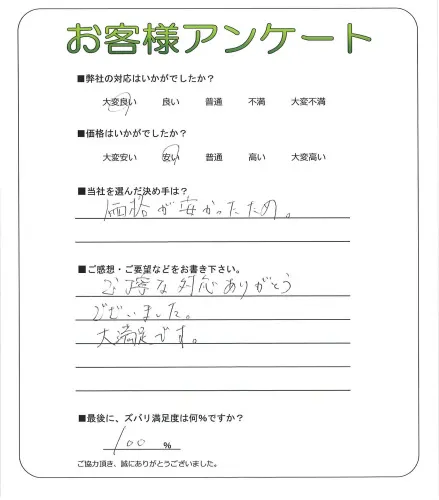 お客様アンケート
■弊社の対応はいかがでしたか?
大変良い 良い 普通 不満 大変不満
■価格はいかがでしたか?
大変安い 安い 普通 高い 大変高い
■当社を選んだ決め手は?
価格が安かったため。
■ご感想・ご要望などをお書き下さい。
ご丁寧な対応ありがとう
ございました。
大満足です。
■最後に、ズバリ満足度は何%ですか?
100 %
ご協力頂き、誠にありがとうございました。